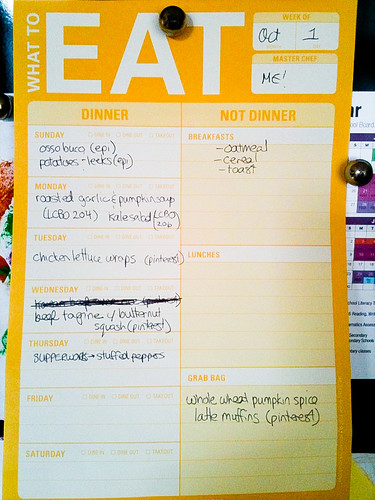 WHAT TO EAT
WEEK OF
Oct 1
MASTER CHEF
ME!
DINNER
NOT DINNER
SUNDAY □ DINE IN □ DINE OUT □ TAKEOUT
osso buco (epi)
potatoes-leeks (epi)
MONDAY □ DINE IN □ DINE OUT □ TAKEOUT
roasted garlic & pumpkin soup
(LCBO 204) kale salad (LCBO
206)
TUESDAY □ DINE IN □ DINE OUT □ TAKEOUT
chicken lettuce wraps (pinterest)
WEDNESDAY □ DINE IN □ DINE OUT □ TAKEOUT
beef tagine w/ butternut
squash (pinterest)
THURSDAY □ DINE IN □ DINE OUT □ TAKEOUT
SUPPERWORKS → stuffed peppers
FRIDAY □ DINE IN □ DINE OUT □ TAKEOUT
SATURDAY □ DINE IN □ DINE OUT □ TAKEOUT
BREAKFASTS
- oatmeal
- cereal
- toast
LUNCHES
GRAB BAG
whole wheat pumpkin spice
latte muffins (pinterest)